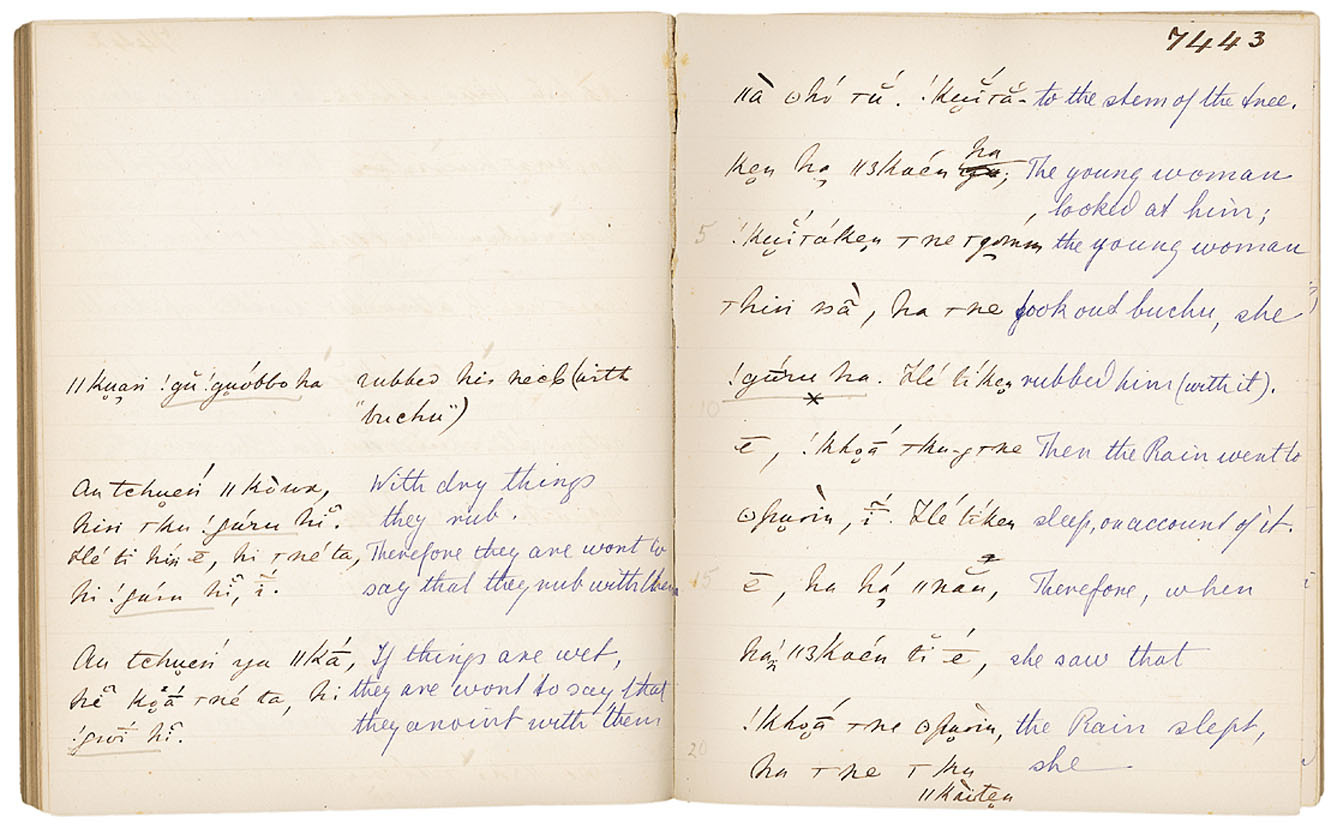 7443
ǁku̥a̤rí ǃgŭ́ǃgu̥óbbo ha rubbed his neck (with
"buchu")
Au tchu̥eń ǁkòwa, With dry things
hiń ⊤ku ǃgáru hĩ. they rub.
Hé ti hiń ē, hi ⊤né ta, Therefore they are wont to
hi ǃgáru hĩ, ī́. say that they rub with them
Au tchu̥eń ya ǁkā́, If things are wet,
hĕ ko̤ā́ ⊤né ta, hi they are wont to say that
ǃgwī́ hĩ. they anoint with them
ǁà ʘhó ⊤ŭ́. ǃku̥ĭ́⊤ắ- to the stem of the tree.
ke̤n ha̤ ǁ3koẹ́n ha; The young woman
, looked at him;
5 ǃku̥ĭ́⊤áke̤n ⊤ne ⊤go̤m̄m the young woman
⊤hiń sã̀, ha ⊤ne took out buchu, she
ǃgúru ha. Hé tíke̤n rubbed him (with it).
10 ×
ē, ǃkho̤ā́ ⊤ku-g ⊤ne Then the Rain went to
ʘpu̥òin, ī́. Hé tíke̤n sleep, on account of it.
15 ē, ha há̤ ǁnău, Therefore, when
há̤ń ǁ3koẹ́n tĭ é, she saw that
ǃkho̤ā́ ⊤ne ʘpu̥òin, the Rain slept,
20 ha ⊤ne ⊤ku she
ǁkàite̤n